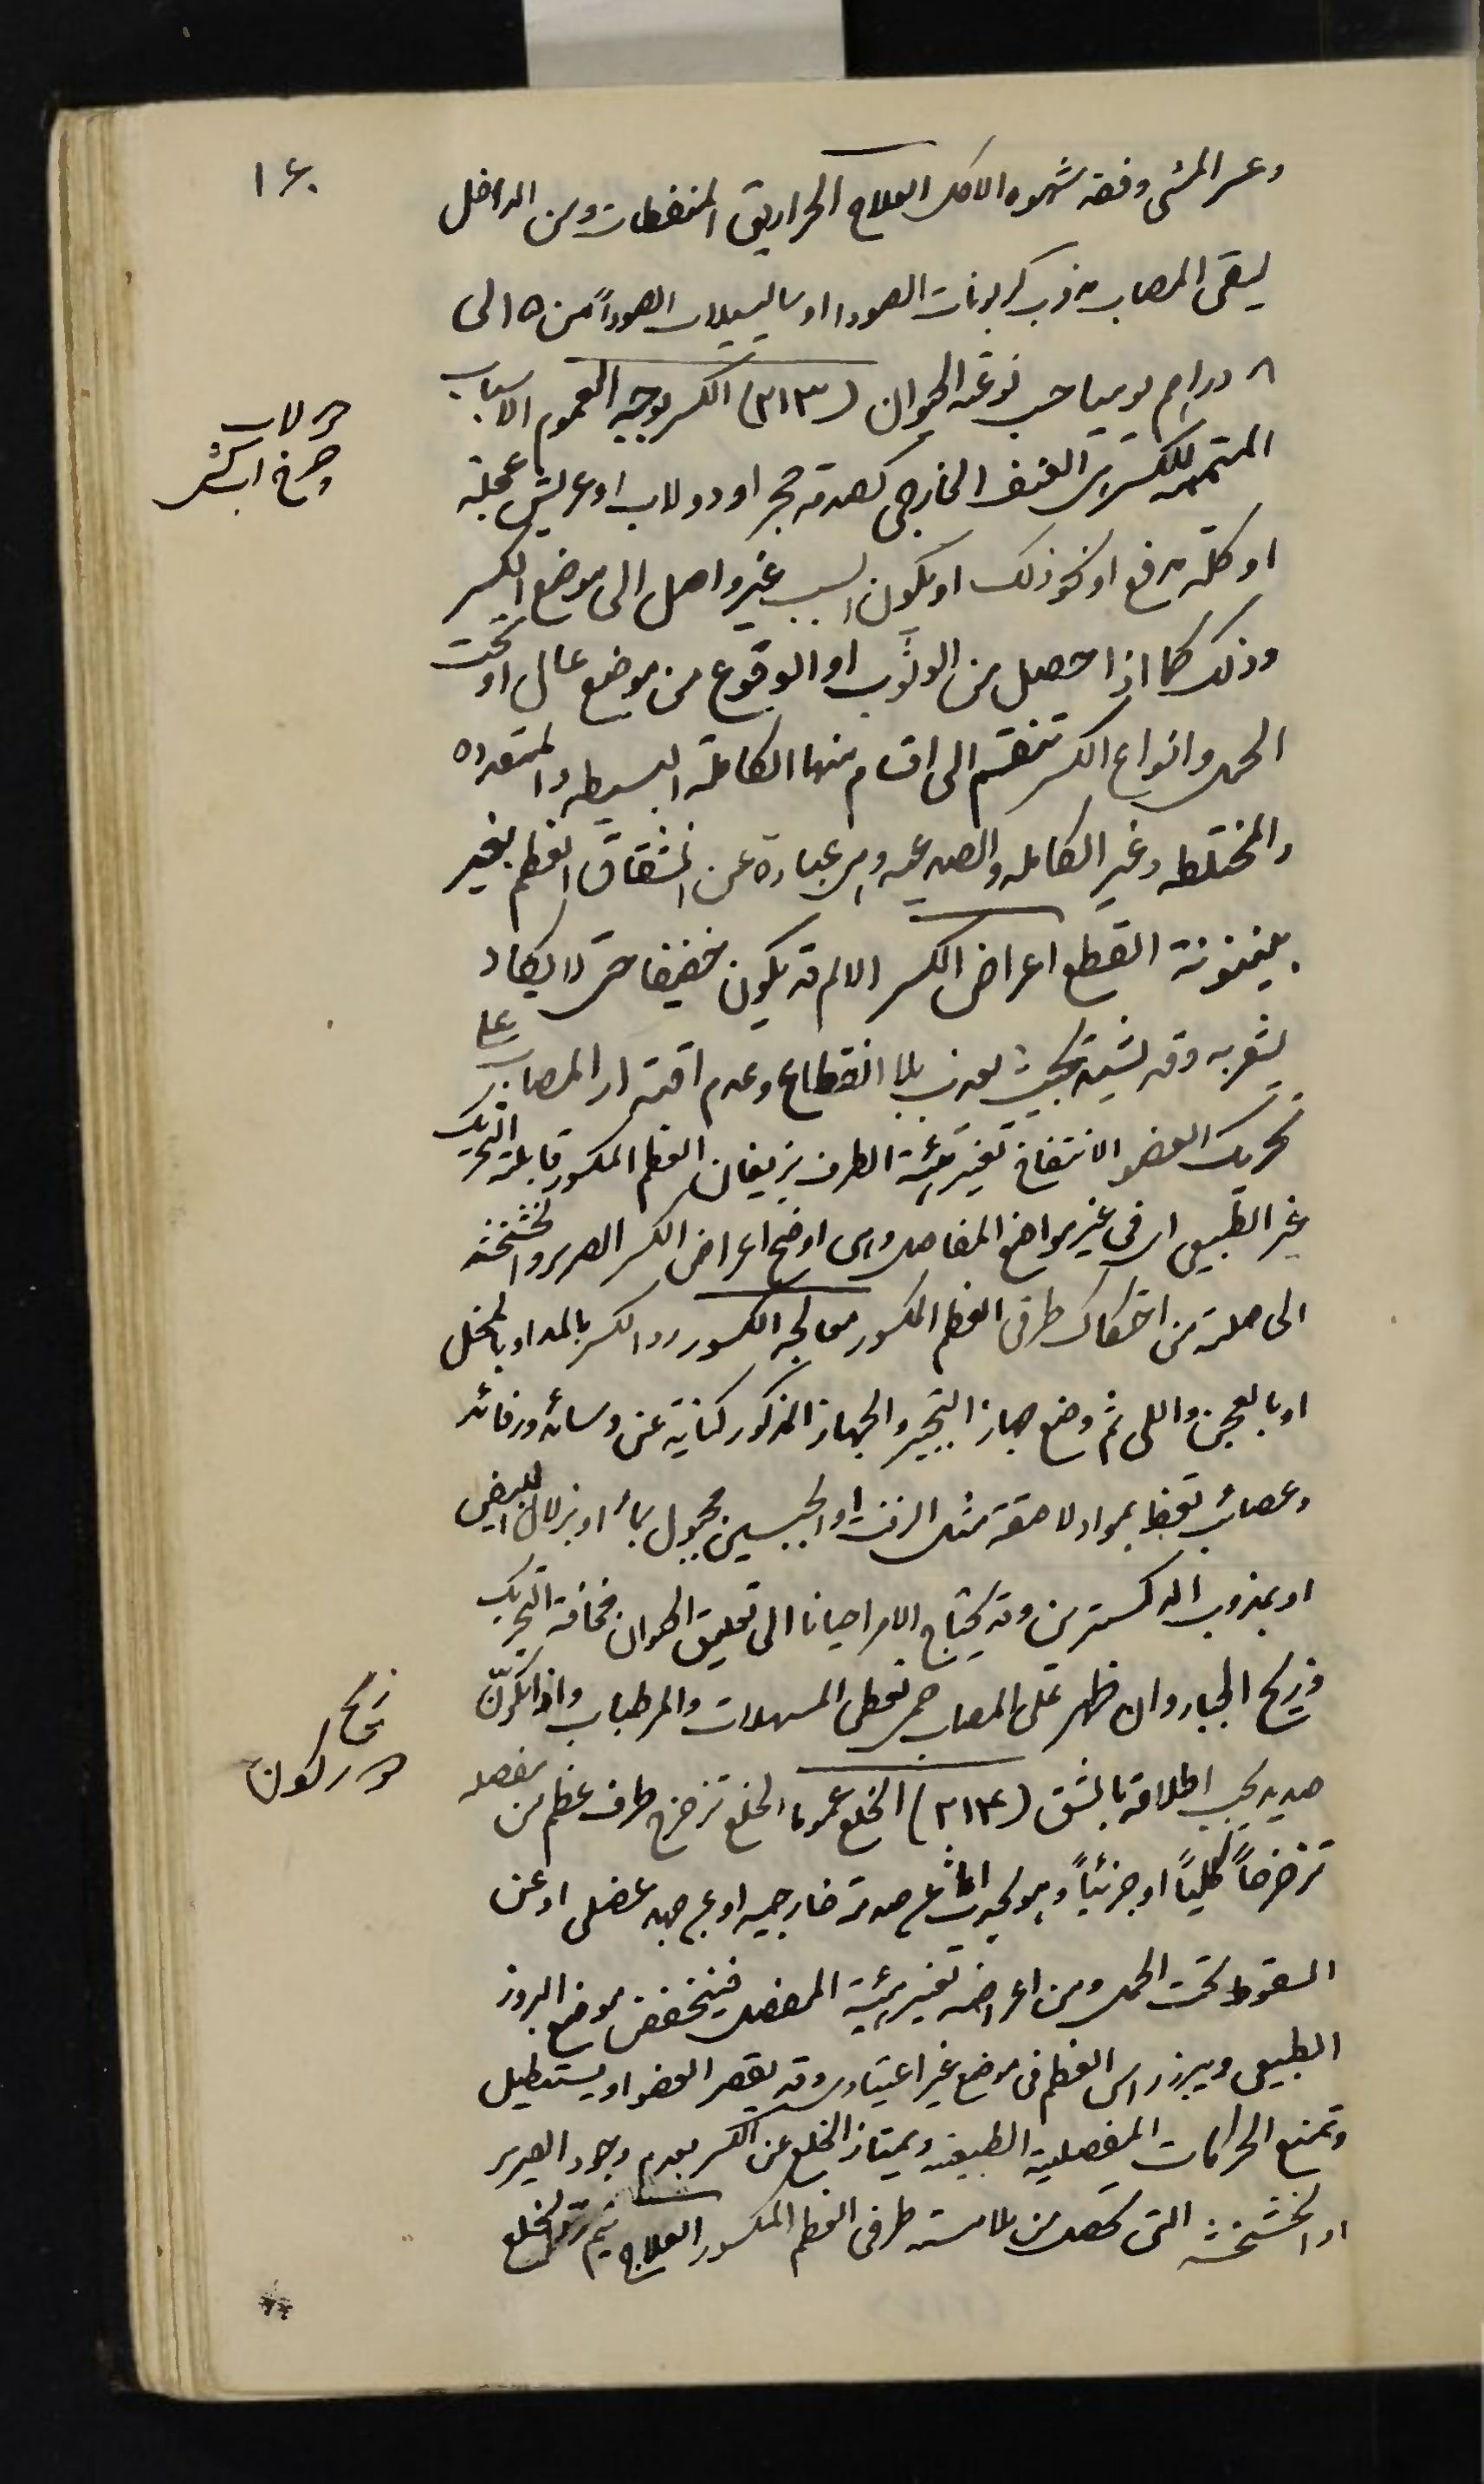 ١٤٠
وعسر المشى وفقد شهوه الاكل العلاج الحراريق المنفطات ومن الداخل
يسقى المصاب مذوب كربونات الصودا او ساليسيلات الصوداً من ٥ الى
٨ دراهم يوميا حسب نوعية الحيوان (٢١٣) الكسر بوجه العموم الاسباب
المتممه للكسر هى العنف الخارجى كصدمة حجر او دولاب او عريش عجلة
او كلة مدفع او نحو ذلك او يكون السبب غير واصل الى موضع الكسر
وذلك كما اذا حصل من الوثوب او الوقوع من موضع عالى او تحت
الحمل وانواع الكسر تنقسم الى اقسام منها الكاملة البسيطه والمتعدده
والمختلطه وغير الكامله والصدعيه وهى عبارة عن انشقاق العظم بغير
بينونة القطع اعراض الكسر الالم قد يكون خفيفا حتى لا يكاد
يشعر به وقد يشتد بحيث يعذب بلا انقطاع وعدم اقتدار المصاب على
تحريك العضو الانتفاخ تغير هيئة الطرف بزيغان العظم المكسور قابلية التحريك
غير الطبيعى اى فى غير مواضع المفاصل وهى اوضح اعراض الكسر الصرير والخشخشه
الحاصلة من احتكاك طرفى العظم المكسور معالجة الكسور رد الكسر بالمد او بالمخل
او بالعجن واللى ثم وضع جهاز التجبير والجهاز المذكور كناية عن وسائد ورفائد
وعصائب تحفظ بمواد لاصقة مثل الزفت او الجبسين مجبول بماء او بزلال البيض
او بمذوب الدكسترين وقد يحتاج الامر احيانا الى تعليق الحيوان مخافة التحريك
وزيح الجبار وان ظهر على المصاب حمى تعطى المسهلات والمرطبات واذا تكوّن
صديد يجب اطلاقه بالشق (٢١٤) الخلع عموما الخلع تزحزح طرف عظم من مفصله
تزحزحاً كلياً او جزئياً وهو يحدث اما عن صدمة خارجيه او عن جهد عضلى او عن
السقوط تحت الحمل ومن اعراضه تغير هيئة المفصل فينخفض موضع البروز
الطبيعى ويبرز راس العظم فى موضع غير اعتيادى وقد يقصر العضو او يستطيل
وتمنع الحركات المفصلية الطبيعيه ويمتاز الخلع عن الكسر بعدم وجود الصرير
او الخشخشه التى تحصل من ملامسة طرفى العظم المكسور العلاج يتم برد الخلع
دولاب
چرخ
زيح